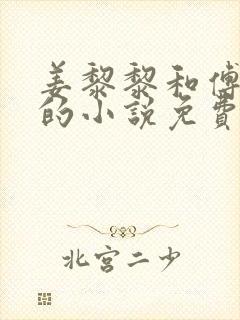 姜黎黎和傅
的小说免費
北宮二少